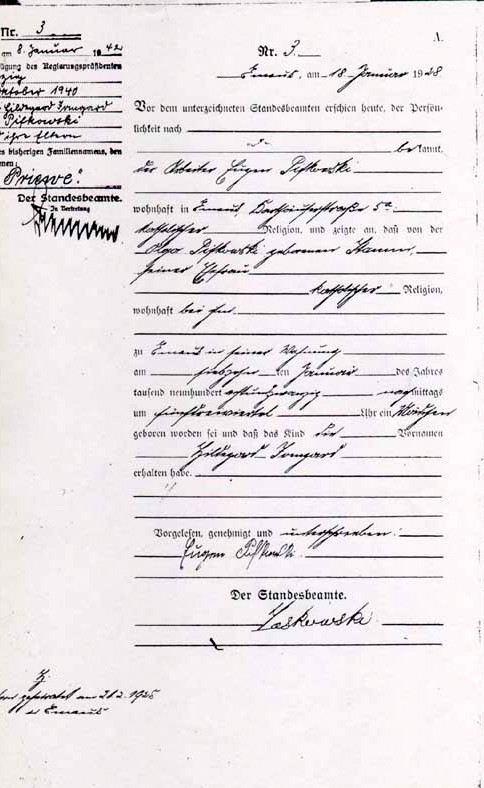 Nr. 3
am 8. Januar 1942
ügung des Regierungspräsidenten
zig
ktober 1940
Hildegard Irmgard
Pifkowski
ihre Eltern
es bisherigen Familiennamens, den
men:
"Priewe".
Der Standesbeamte.
In Vertretung
A.
Nr. 3
Emaus, am 18. Januar 1928
Vor dem unterzeichneten Standesbeamten erschien heute, der Persön-
lichkeit nach
bekannt,
der Arbeiter Eugen Pifkowski
wohnhaft in Emaus, 5a
katholischer Religion, und zeigte an, daß von der
Olga Pifkowski geborenen Stamm,
seiner Ehefrau
katholischer Religion,
wohnhaft bei ihm
zu Emaus in seiner Wohnung
am siebzehnten Januar des Jahres
tausend neunhundert achtundzwanzig nachmittags
um fünfdreiviertel Uhr ein Mädchen
geboren worden sei und daß das Kind die Vornamen
Hildegard Irmgard
erhalten habe.
Vorgelesen, genehmigt und unterschrieben:
Eugen Pifkowski
Der Standesbeamte.
geheiratet am 21.2.1925
in Emaus